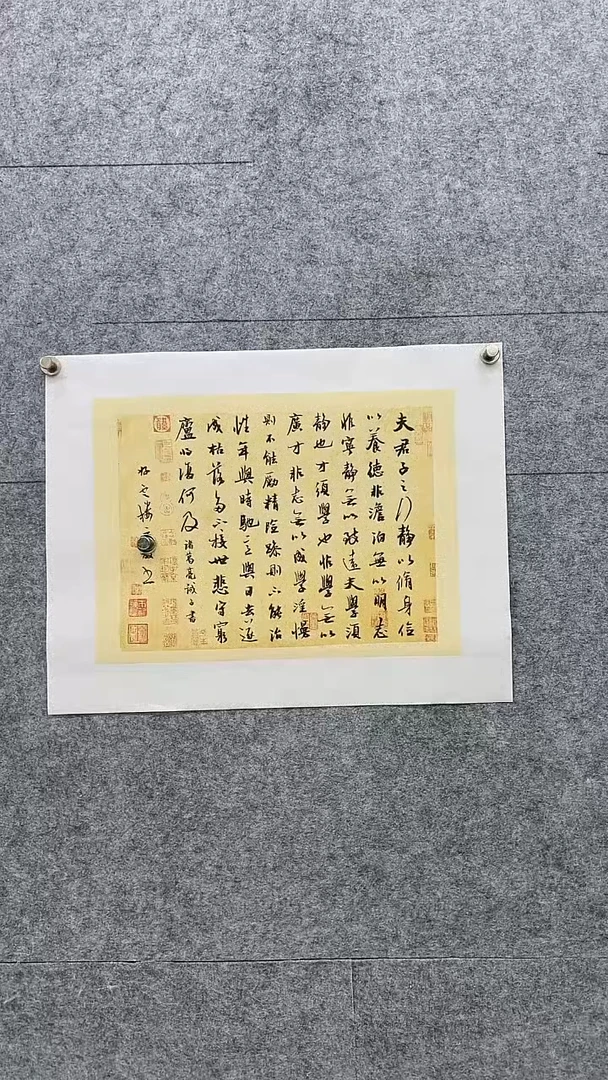 夫君子之行静以脩身俭
以養德非澹泊無以明志
非寧静無以致遠夫學須
静也才須學也非學無以
廣才非志無以成學淫慢
則不能励精險躁則不能治
性年與時馳意與日去遂
成枯落多不接世悲守窮
廬將復何及
諸葛亮誡子書